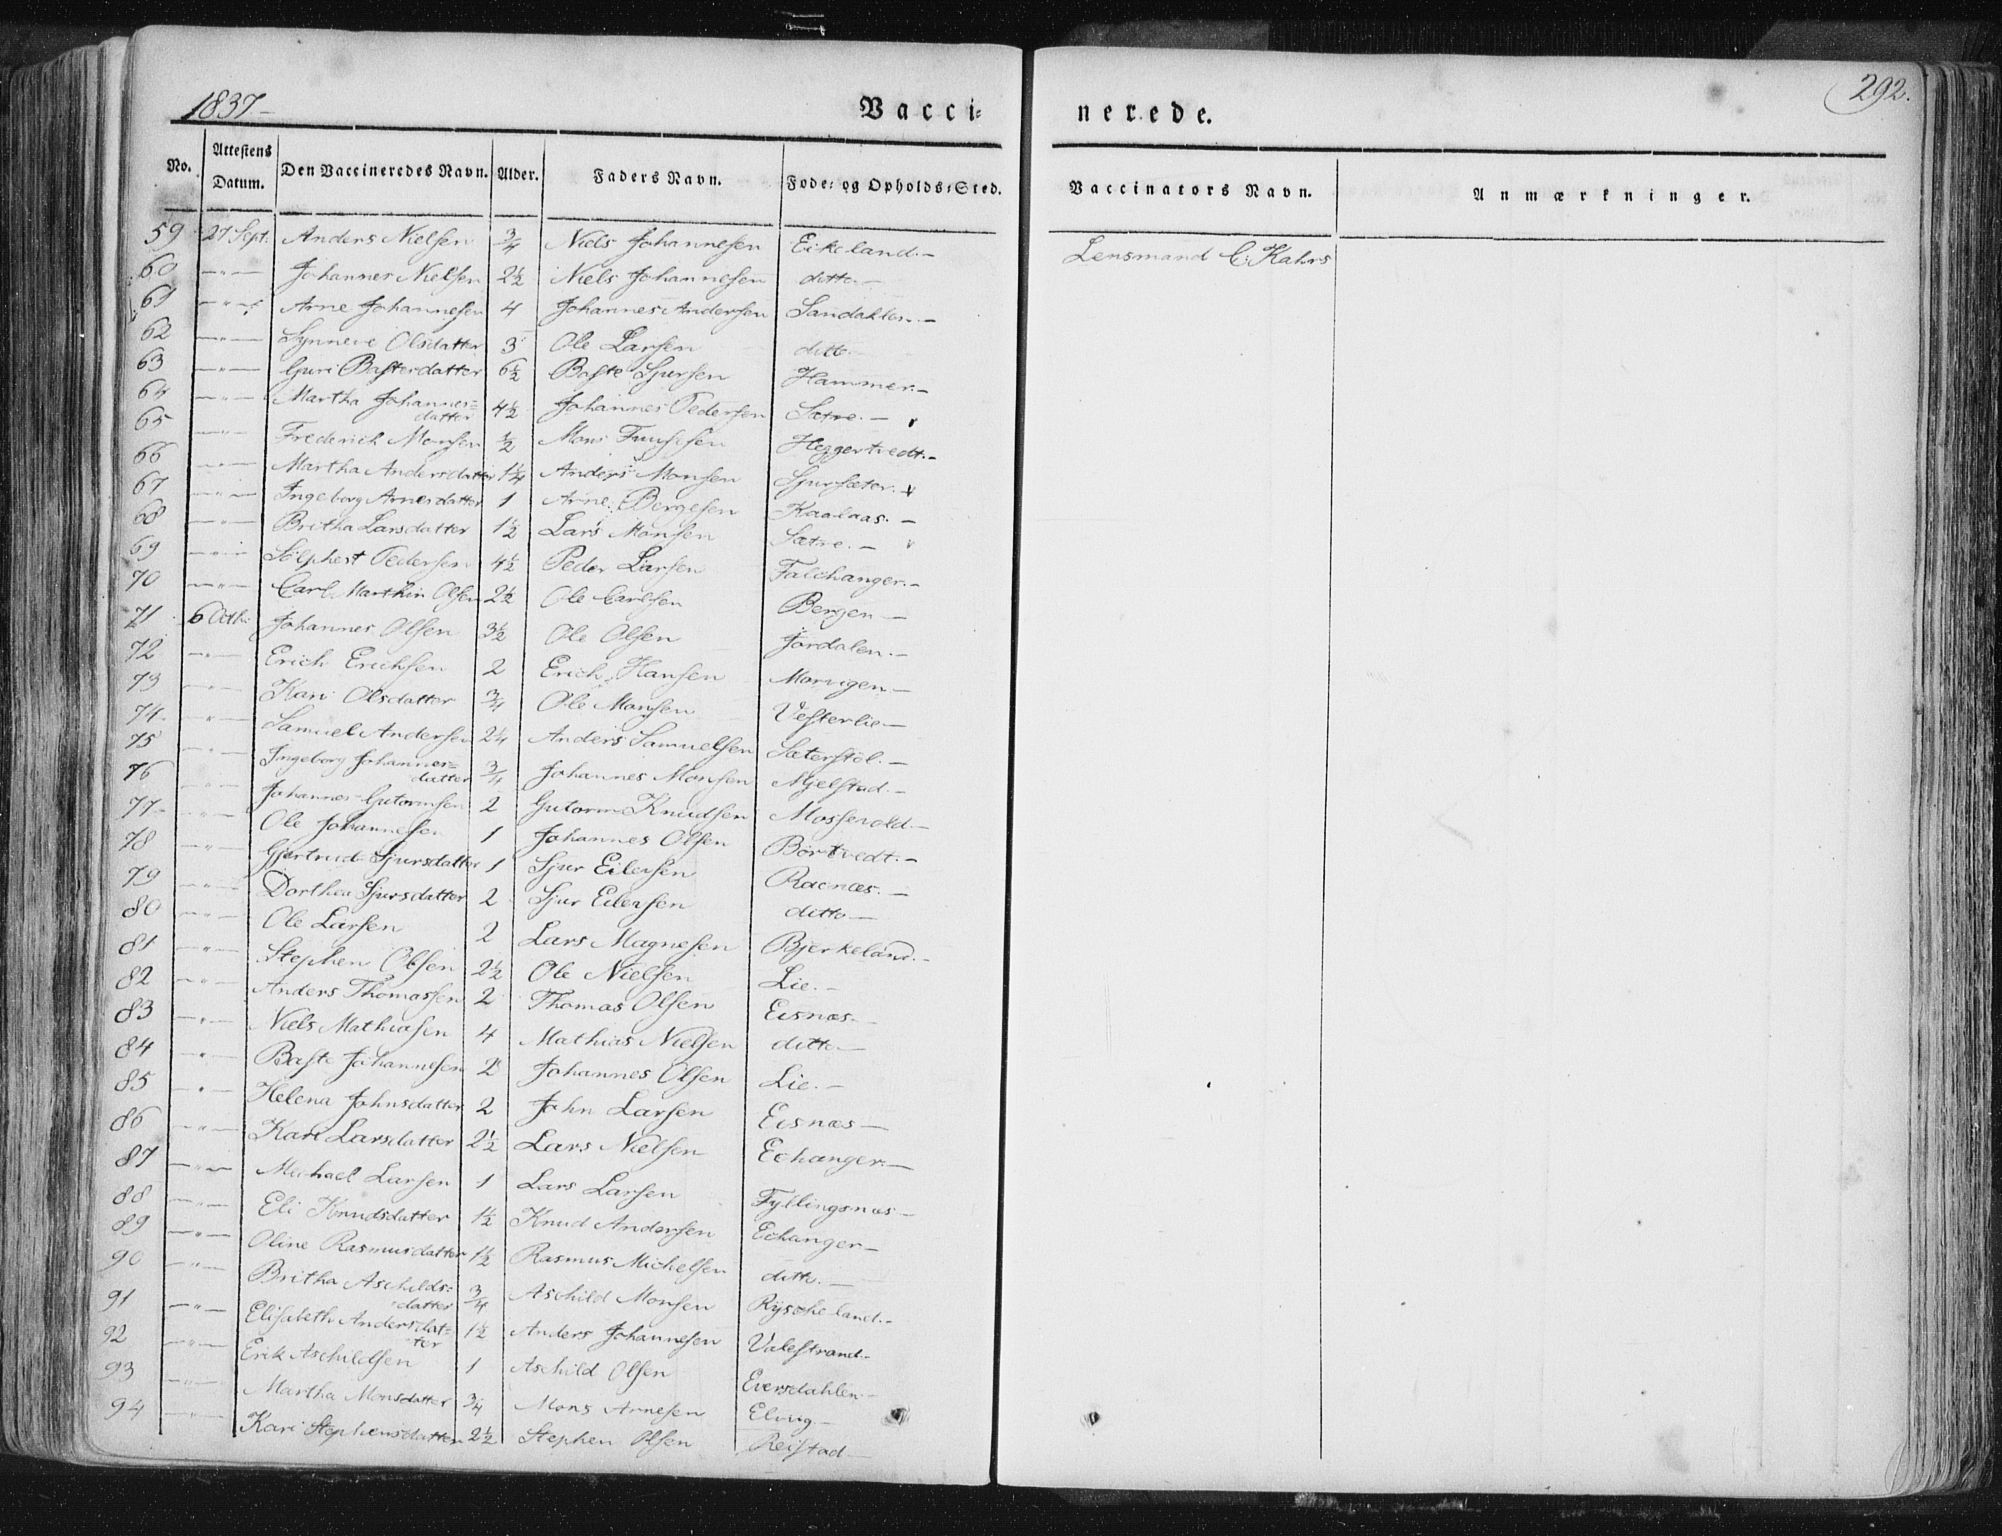 292.
1837.-
Vacci=
nerede.
No. Attestens Datum. Den Vaccineredes Navn. Alder. Faders Navn. Føde= og Opholds=Sted. Vaccinators Navn. Anmærkninger.
59 27 Sept. Anders Nielsen 3/4 Niels Johannesen Eikeland.- Lensmand C: Kahrs
60 -"- Johannes Nielsen 2 1/2 Niels Johannesen ditto.-
61 -"- Arne Johannesen 4 Johannes Andersen Sandahlen.-
62 -"- Synneve Olsdatter 3 Ole Larsen ditto.
63 -"- Guri Bastesdatter 6 1/2 Baste Sjursen Hammer.-
64 -"- Martha Johannes=
datter 4 1/2 Johannes Pedersen Sætre.-
65 -"- Frederich Monsen 1/2 Mons Heggertvedt.-
66 -"- Martha Andersdatter 1 1/4 Anders Monsen Sjursæter.
67 -"- Ingeborg Arnesdatter 1 Arne Bergesen Kaalaas.-
68 -"- Britha Larsdatter 1 1/2 Lars Monsen Sætre.-
69 -"- Sølphest Pedersen 4 1/2 Peder Larsen Falchanger.-
70 -"- Carl Marthin Olsen 2 1/2 Ole Carlsen Bergen-
71 6 Octb. Johannes Olsen 3 1/2 Ole Olsen Jordalen.-
72 -"- Erich Erichsen 2 Erich Hansen Morvigen-
73 -"- Kari Olsdatter 3/4 Ole Monsen Vesterlie-
74 -"- Samuel Andersen 2 1/4 Anders Samuelsen Sæterstøl.-
75 -"- Ingeborg Johannes=
datter 3/4 Johannes Monsen Mjelstad.-
76 -"- Johannes Gutormsen 2 Gutorm Knudsen Mosevold-
77 -"- Ole Johannesen 1 Johannes Olsen Børtvedt.-
78 -"- Gjertrud Sjursdatter 1 Sjur Eilersen Raanæs.-
79 -"- Dorthea Sjursdatter 2 Sjur Eilersen ditto-
80 -"- Ole Larsen 2 Lars Magnesen Bjerkeland.-
81 -"- Stephen Olsen 2 1/2 Ole Nielsen Lie.-
82 -"- Anders Thomassen 2 Thomas Olsen Eisnæs.-
83 -"- Niels Mathiasen 4 Mathias Nielsen ditto-
84 -"- Baste Johannesen 2 Johannes Olsen Lie.-
85 -"- Helena Johnsdatter 2 John Larsen Eisnæs-
86 -"- Kari Larsdatter 2 1/2 Lars Nielsen Echanger.-
87 -"- Michael Larsen 1 Lars Larsen Fyllingsnæs-
88 -"- Eli Knudsdatter 1 1/2 Knud Andersen Echanger-
89 -"- Oline Rasmusdatter 1 1/2 Rasmus Michelsen ditto.-
90 -"- Britha Aschilds=
datter 3/4 Aschild Monsen Ryscheland.-
91 -"- Elisabeth Andersdat=
ter 1 1/2 Anders Johannesen Valestrand.-
92 -"- Erik Aschildsen 1 Aschild Olsen Eversdahlen-
93 -"- Martha Monsdatter 3/4 Mons Arnesen Elvig.-
94 -"- Kari Stephensdatter 2 1/2 Stephen Olsen Reistad-